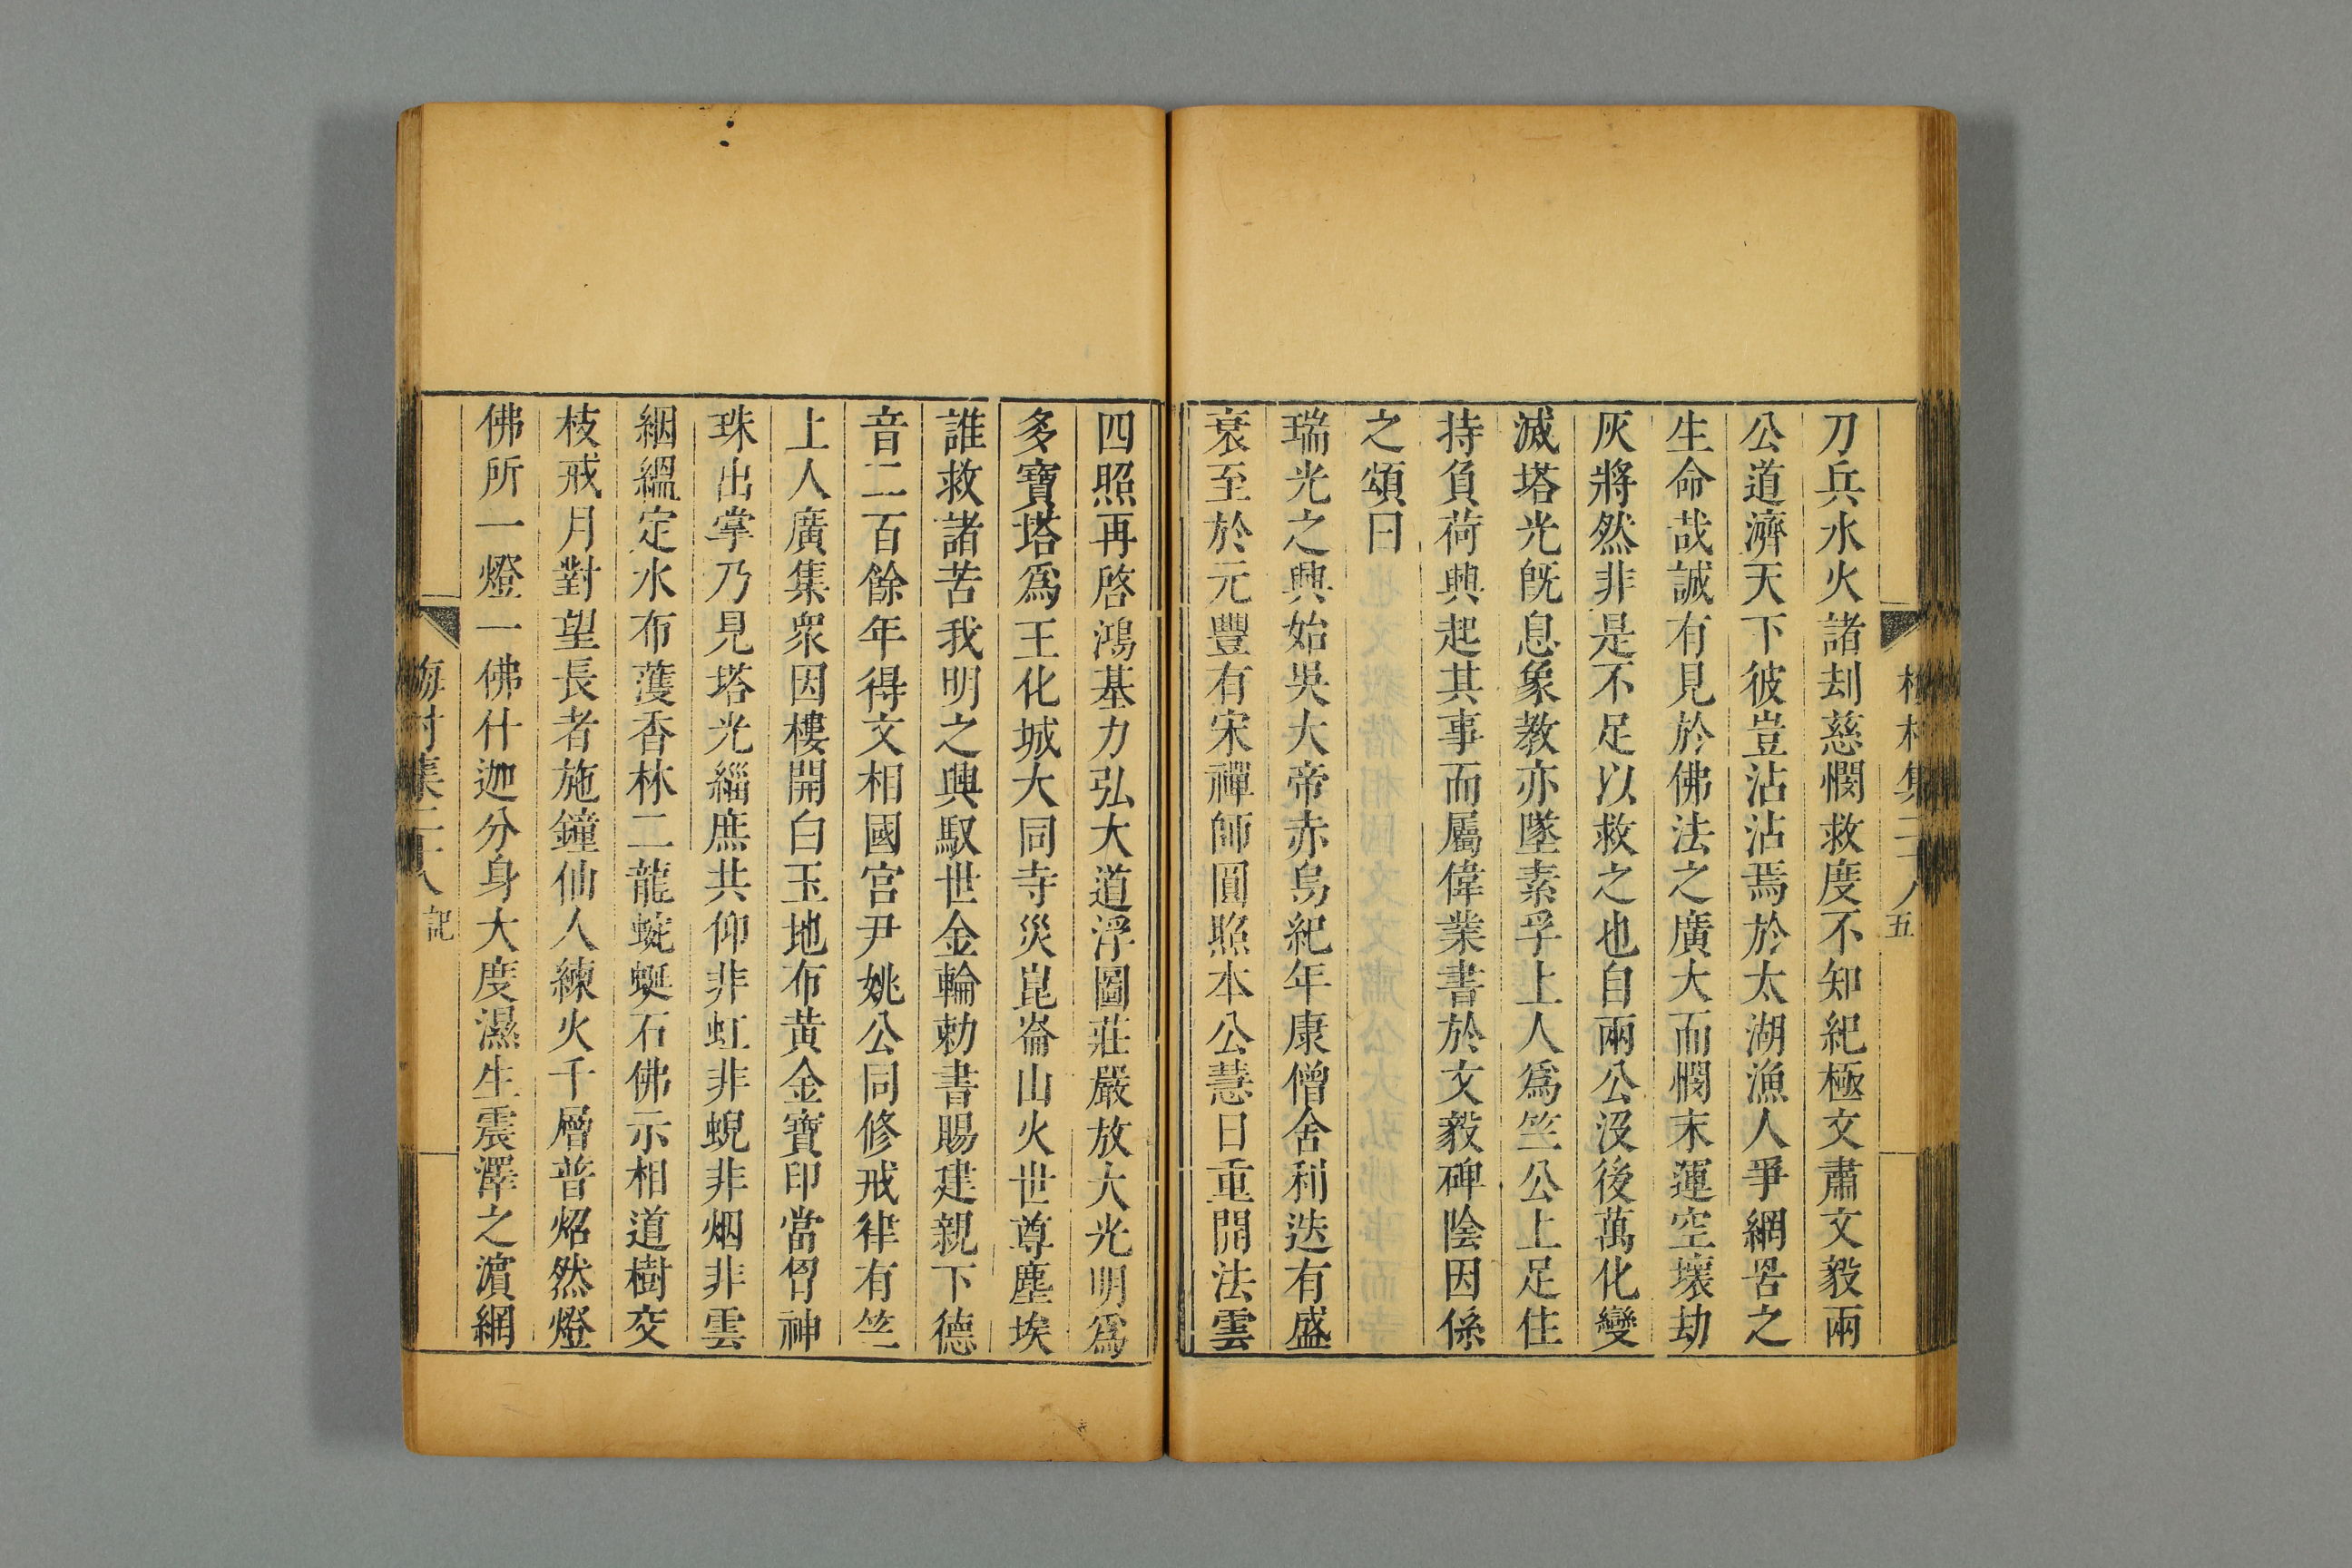 刀兵水火諸刼慈憫救度不知紀極文肅文毅兩
公道濟天下彼豈沾沾焉於太湖漁人爭網罟之
生命哉誠有見於佛法之廣大而憫末運空壞劫
灰將然非是不足以救之也自兩公沒後萬化變
滅塔光旣息象教亦墜素孚上人爲竺公上足住
持負荷興起其事而屬偉業書於文毅碑陰因係
之頌曰
瑞光之興始吳大帝赤烏紀年康僧舍利迭有盛
衰至於元豐有宋禪師圓照本公慧日重開法雲
四照再啓鴻基力弘大道浮圖莊嚴放大光明爲
多寶塔爲王化城大同寺災崑崙山火世尊塵埃
誰救諸苦我明之興馭世金輪勅書賜建親下德
音二百餘年得文相國宫尹姚公同修戒律有竺
上人廣集衆因樓開白玉地布黄金寶印當胷神
珠出掌乃見塔光緇庶共仰非虹非蜺非烟非雲
絪縕定水布濩香林二龍蜿蜒石佛示相道樹交
枝戒月對望長者施鐘仙人練火千層普炤然燈
佛所一燈一佛什迦分身大度濕生震澤之濵網
梅村集二十八
記
五